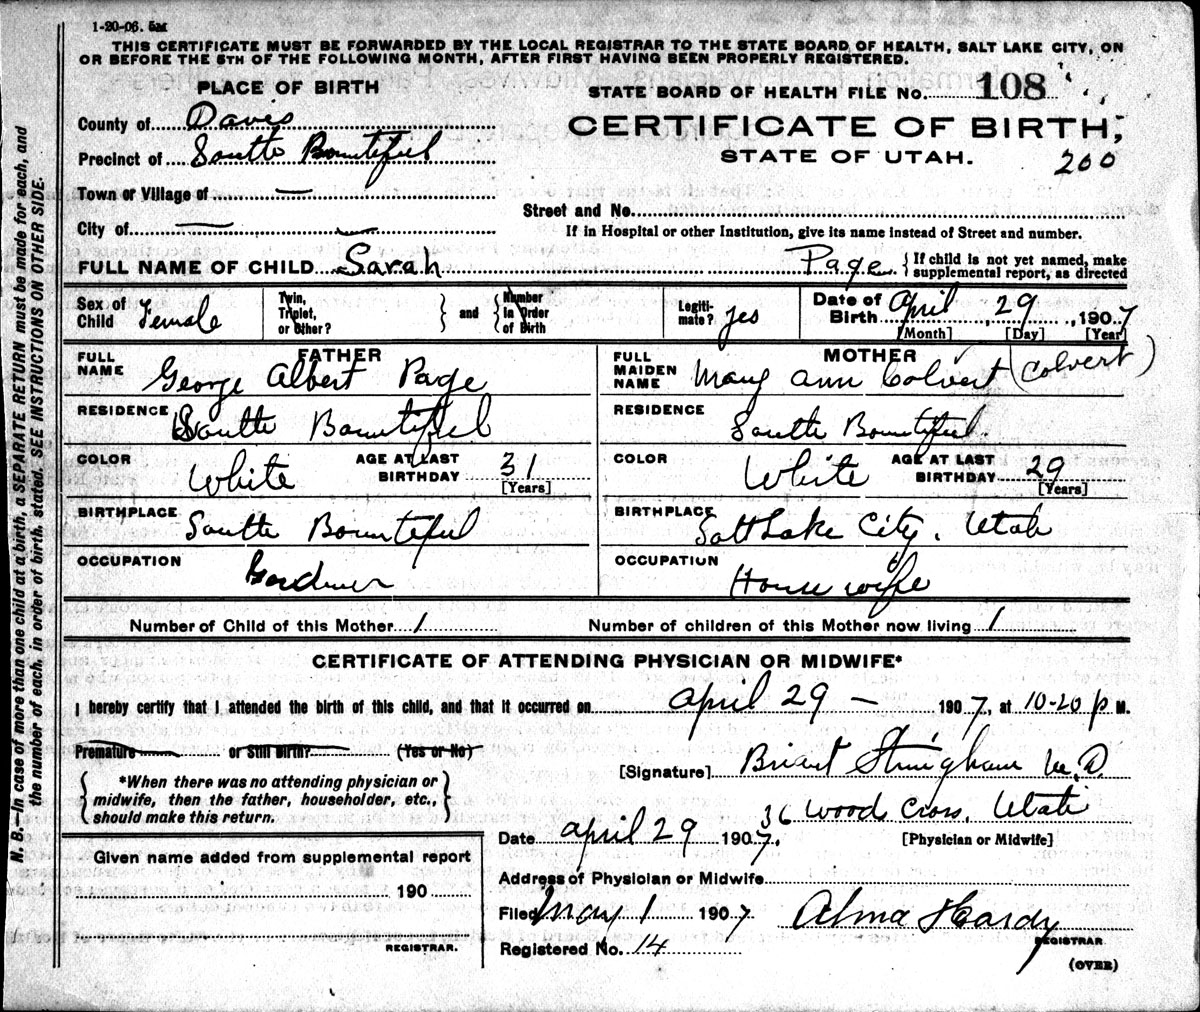 1-20-06. 5M
THIS CERTIFICATE MUST BE FORWARDED BY THE LOCAL REGISTRAR TO THE STATE BOARD OF HEALTH, SALT LAKE CITY, ON
OR BEFORE THE 5TH OF THE FOLLOWING MONTH, AFTER FIRST HAVING BEEN PROPERLY REGISTERED.
PLACE OF BIRTH
STATE BOARD OF HEALTH FILE No. 108
County of Davis
CERTIFICATE OF BIRTH,
Precinct of South Bountiful
STATE OF UTAH.
200
Town or Village of —
Street and No.
City of —
If in Hospital or other Institution, give its name instead of Street and number.
FULL NAME OF CHILD Sarah Page { If child is not yet named, make
supplemental report, as directed
Sex of Child Female
Twin, Triplet, or Other? } and { Number in Order of Birth
Legiti-mate? yes
Date of Birth April 29, 1907
[Month] [Day] [Year]
FATHER
FULL NAME George Albert Page
RESIDENCE South Bountiful
COLOR White AGE AT LAST BIRTHDAY 31 [Years]
BIRTHPLACE South Bountiful
OCCUPATION Gardner
MOTHER
FULL MAIDEN NAME Mary Ann Colvert (Colvert)
RESIDENCE South Bountiful
COLOR White AGE AT LAST BIRTHDAY 29 [Years]
BIRTHPLACE Salt Lake City. Utah
OCCUPATION House wife
Number of Child of this Mother 1 Number of children of this Mother now living 1
CERTIFICATE OF ATTENDING PHYSICIAN OR MIDWIFE*
I hereby certify that I attended the birth of this child, and that it occurred on April 29 — 1907, at 10-20 P M.
Premature or Still Birth? (Yes or No)
[Signature] Briant Stringham M.D.
{ *When there was no attending physician or
midwife, then the father, householder, etc.,
should make this return. }
36 Wood Cross, Utah
Date April 29 1907. [Physician or Midwife]
Given name added from supplemental report
190
REGISTRAR.
Address of Physician or Midwife
Filed May 1 1907 Alma Hardy
REGISTRAR
Registered No. 14
(OVER)
N. B.—In case of more than one child at a birth, a SEPARATE RETURN must be made for each, and
the number of each, in order of birth, stated. SEE INSTRUCTIONS ON OTHER SIDE.